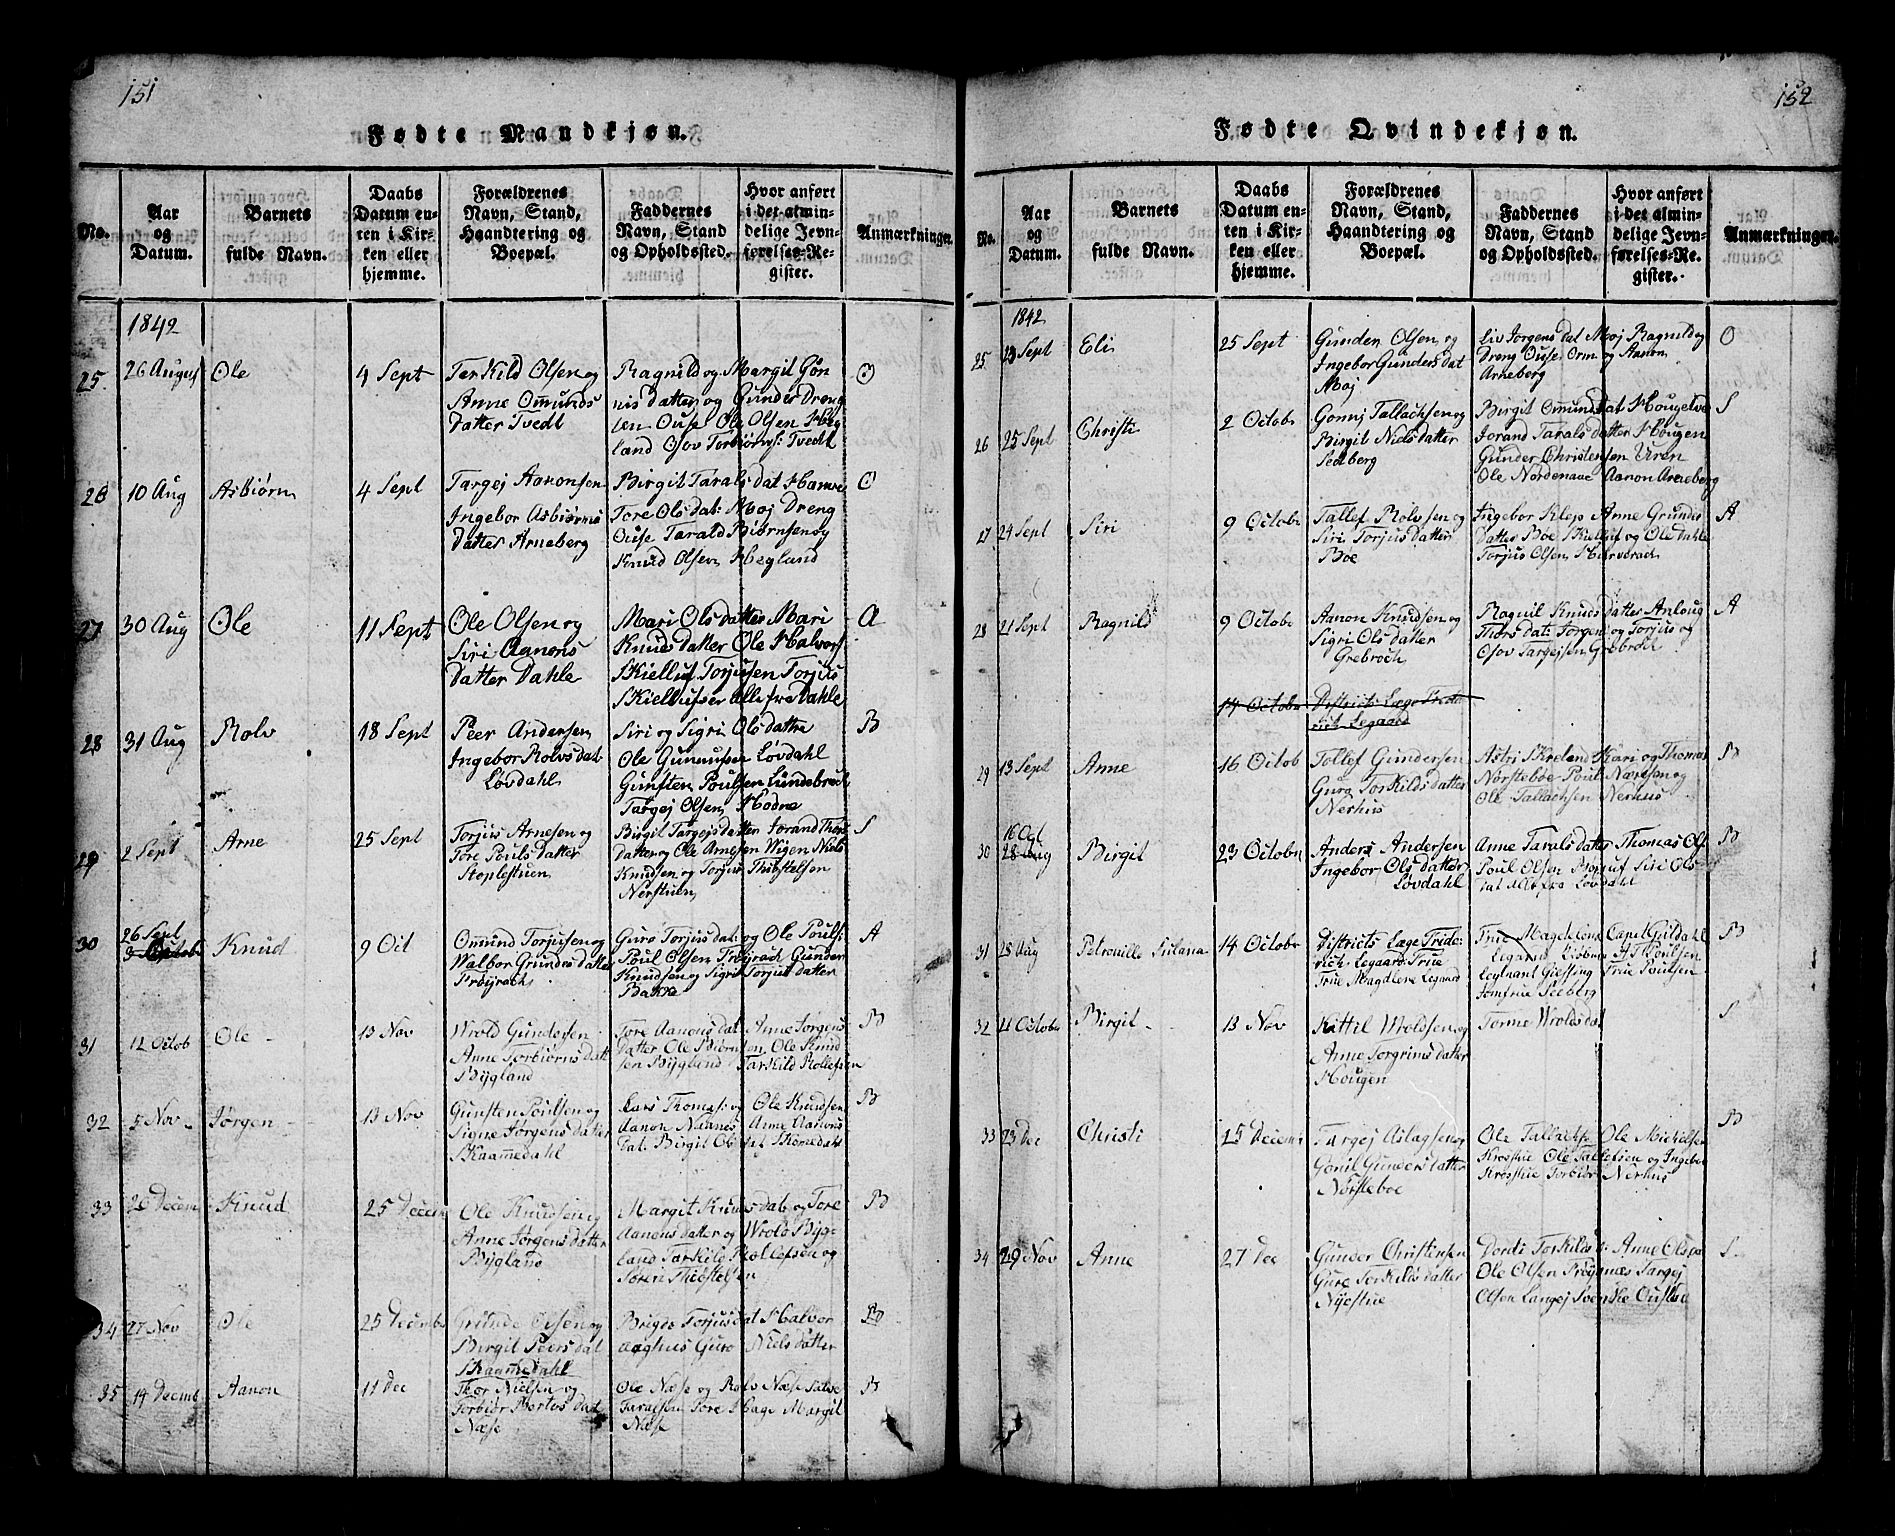 151
Fødte Mandkjøn.
No.
Aar og Datum.
Barnets fulde Navn.
Daabs Datum enten i Kirken eller hjemme.
Forældrenes Navn, Stand, Haandtering og Boepæl.
Faddernes Navn, Stand og Opholdssted.
Hvor anført i det almindelige Jevnførelses-Register.
Anmærkninger.
1842
25. 26 August Ole 4 Sept
Terkild Olsen og
Anne Omunds
datter Tvedt
Ragnild og Margit Gøn
nis datter og Gunder Dreng
sen Ouse Ole Olsen Heg
land Osov Torbiørns: Tvedt
O
26 10 Aug Asbiørn 4 Sept
Targej Aanonsen
Ingebor Asbiørns
datter Arneberg
Birgit Taralsdat Hamre
Tore Olsdat: Moj Dreng
Ouse Tarald Biørnsen og
Knud Olsen Hegland
O
27 30 Aug Ole 11 Sept
Ole Olsen og
Siri Aanons
datter Dahle
Mari Olsdatter Mari
Knudsdatter Ole Halvors
Skielluf Torjussen Torjus
Skiellufsen alle fra Dahle
A
28 31 Aug Rolv 18 Sept
Peer Andersen
Ingebor Rolvsdat
Løvdahl
Siri og Sigri Olsdatre
Ole Gunnufsen Løvdahl
Gunsten Poulsen Lundebroch
Targej Olsen Hodne
B
29 2 Sept Arne 25 Sept
Torjus Arnesen og
Tore Poulsdatter
Stoplestuen
Birgit Targejsdatter Jorand Thors
datter og Ole Arnesen Wigen Niels
Knudsen og Torjus Thiostelsen
Nerstuen
S
30 26 Sept Knud 9 Oct
Omund Torjussen og
Walbor Grundesdatter
Frøiyrach
Guro Torjusdat: og Ole Pouls:
Poul Olsen Frøyrach Gunder
Knudsen og Sigri Torjusdatter
Bakke
A
31 12 Octob Ole 13 Nov
Wrold Gundersen
Anne Torbiørnsdatt
Bygland
Tore Aanonsdat: Anne Jørgens
datter Ole Biørnsen Ole Knud
sen Bygland Tarkild Rollefsen
B
32 5 Nov Jørgen 13 Nov
Gunsten Poulsen og
Signe Jørgensdatter
Skaamedahl
Lars Thomas: og Ole Knudsen
Aanon Naanes Anne Aanons
dat: Birgit Olsdat Skomedahl
B
33 20 Decem Knud 25 Decem
Ole Knudsen og
Anne Jørgensdatter
Bygland
Margit Knudsdat og Tore
Aanonsdatter og Wrold Byg
land Tarkild Rollefsen og
Søren Thiostelsen
B
34 27 Nov Ole 25 Decembr
Grunde Olsen og
Birgit Peersdat
Skaamedahl
Brigdo Torjusdat Halvor
Guro Nielsdatter
B
35 14 Decemb Aanon 11 Dec
Thor Nielsen og
Torbiør Bertosdat
Næse
Ole Næse og Rolv Næse Salve
Taraldsen Tore Hage Margit
Næse
B
152
Fødte Qvindekjøn.
No.
Aar og Datum.
Barnets fulde Navn.
Daabs Datum enten i Kirken eller hjemme.
Forældrenes Navn, Stand, Haandtering og Boepæl.
Faddernes Navn, Stand og Opholdssted.
Hvor anført i det almindelige Jevnførelses-Register.
Anmærkninger.
1842
25 Sept Eli 25 Sept
Gunder Olsen og
Ingebor Gundersdat
Moj
Liv Jørgensdat Moj Ragnild og
Dreng Ouse Orm og Aanon
Arneberg
O
26 25 Sept Christi 2 Octobr
Gonnj Tallachsen og
Birgit Nielsdatter
Sedberg
Birgit Omundsdat Hougetved
Jorand Taralsdatter Hougen
Gunder Christensen Uren
Ole Nordenaae Aanon Arneberg
S
27 24 Sept Siri 9 Octobr
Tallef Rolvsen og
Siri Torjusdatter
Boe
Ingebor Klep Anne Grundes
datter Boe Skielluf og Ole Dahle
Torjus Olsen
A
28 21 Sept Ragnild 9 Octobr
Aanon Knudsen og
Sigri Olsdatter
Grebroch
Ragnil Knudsdatter Anlaug
Thorsdat: Torgen og Torjus og
Osov Targejsen Grebroch
A
14 Octobr Districts Læge Frede
rich Legaard
29 13 Sept Anne 16 Octob
Tollef Gundersen
Guro Torkildsdatter
Nerhus
Astri Skreland Kari og Thomas
Nørsteboe Poul Næsesen og
Ole Tallachsen Nerhus
B
30 16 Oct
28 Aug Birgit 23 Octobr
Anders Andersen
Ingebor Olsdatter
Løvdahl
Anne Taralsdatter Thomas Ols
Poul Olsen Siri Ols
dat Alle fra Løvdahl
B
31 28 Aug Petronille Juliana 14 Octobr
Districts Læge Frede
rich Legaard Frue
Frue Magdlene Legaard
Frue Magdelone Capt Guldahl
Legaard
Leytnant Giessing Frue Poulsen
Jomfrue Seeberg
B
32 11 Octobr Birgit 13 Nov
Kittil Woldsen og
Anne Torgrimsdatter
Hougen
Torine Wroldsdat
S
33 23 Dec Christi 25 Decem
Targej Aslagsen og
Gonil Gundersdatter
Nørsteboe
Ole Tallachs Ole Mickelsen
Krosshue Ole Tallefsen og Ingebor
Krosshue Torbiør Nerhus
B
34 29 Nov Anne 27 Dec
Gunder Christensen
Guro Torkildsdatter
Nyestue
Dordi Torkilds d: Anne Ols
Ole Olsen Frøysnæs Targej
Olsen Langej Svenke Oustad
S